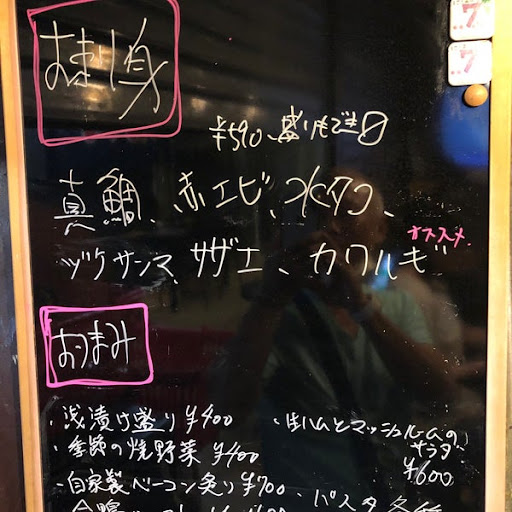 7
7
お刺身
¥590、盛りもできます
真鯛、赤エビ、水タコ、
オススメ
ヅケサンマ、サザエ、カワハギ
おつまみ
・浅漬け盛り ¥400
・生ハムとマッシュルームのサラダ ¥600
・季節の焼野菜 ¥400
・自家製ベーコン炙り ¥700
・パスタ各種